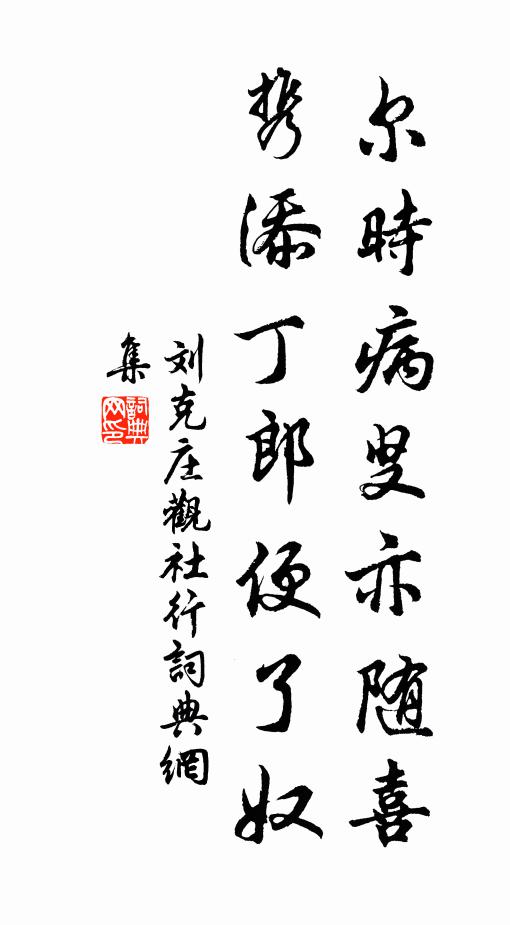 尔時病叟亦随喜
携添丁郎便了奴
刘克庄觀社行詞典網
集
詞典网印